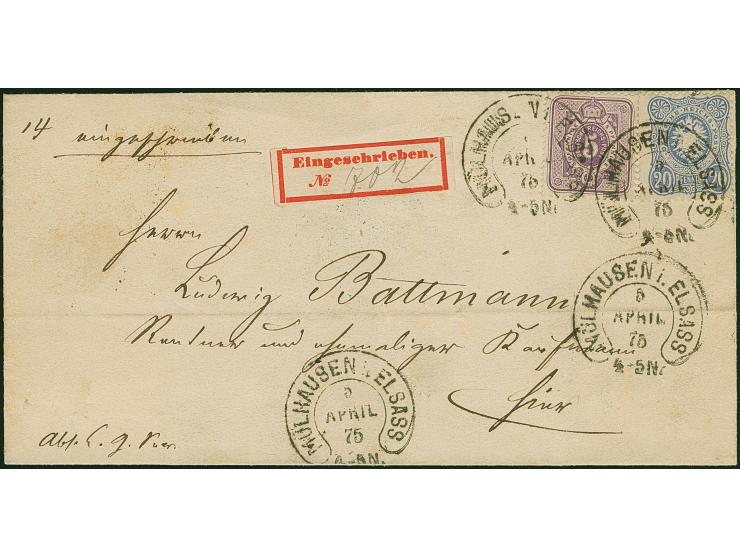 14 eingeschrieben
Eingeschrieben.
№ 702
5
20 20
MÜLHAUSEN I. ELSASS
5
APRIL
75
4-5N.
MÜLHAUSEN I. ELSASS
5
APRIL
75
4-5N.
MÜLHAUSEN I. ELSASS
5
APRIL
75
4-5N.
Herrn
Ludwig Battmann
Rentner und ehemaliger Kaufmann
hier
MÜLHAUSEN I. ELSASS
5
APRIL
75